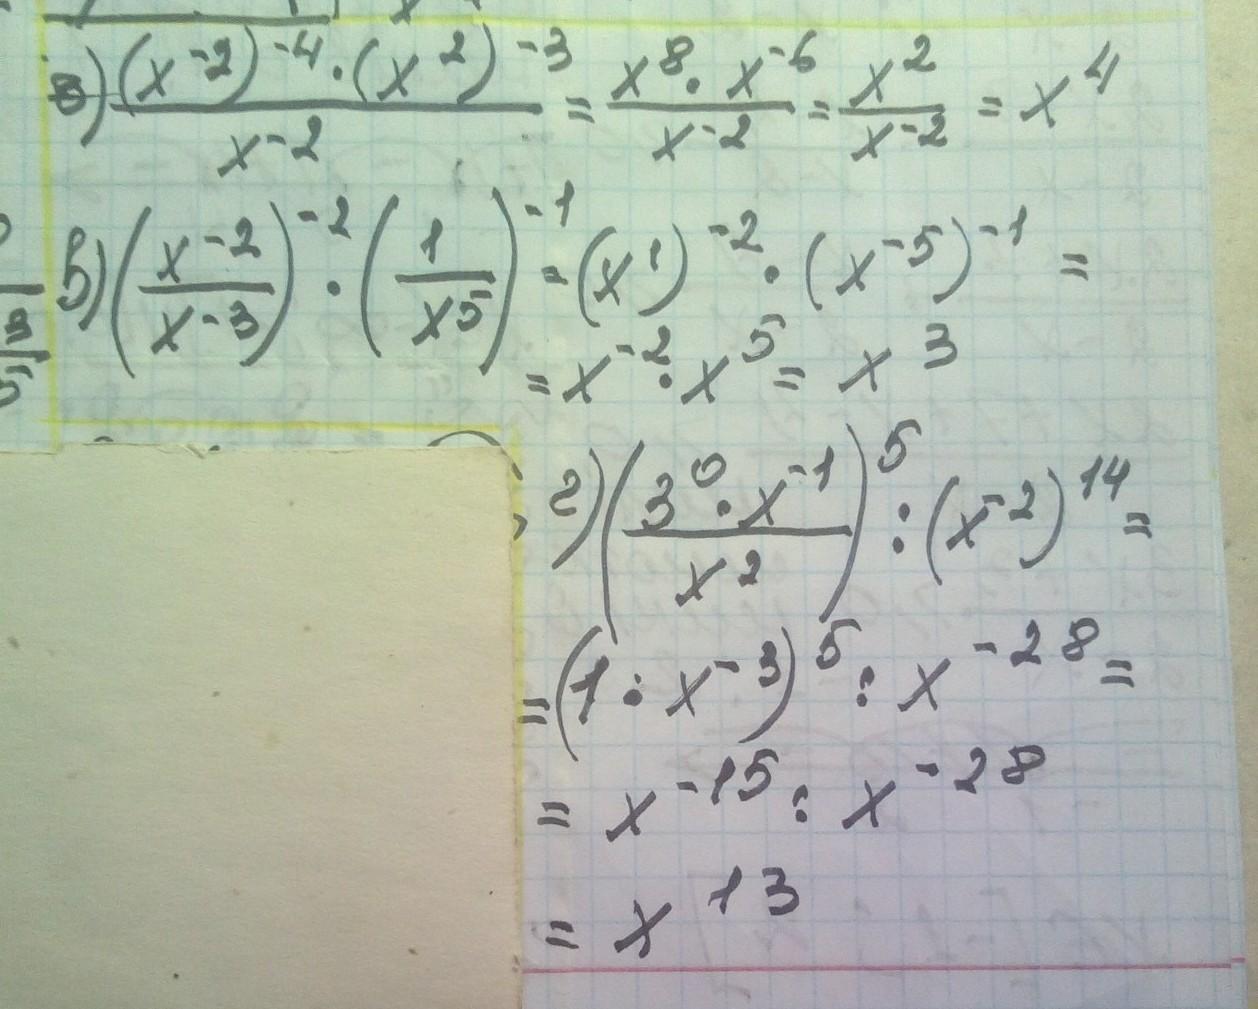 в) ((x⁻²)⁻⁴ · (x²)⁻³) / x⁻² = (x⁸ · x⁻⁶) / x⁻² = x² / x⁻² = x⁴
б) (x⁻² / x⁻³)⁻² · (1 / x⁵)⁻¹ = (x¹)⁻² · (x⁻⁵)⁻¹ =
= x⁻² · x⁵ = x³
г) ((3⁰ · x⁻¹) / x²)⁵ : (x⁻²)¹⁴ =
= (1 · x⁻³)⁵ : x⁻²⁸ =
= x⁻¹⁵ : x⁻²⁸
= x¹³